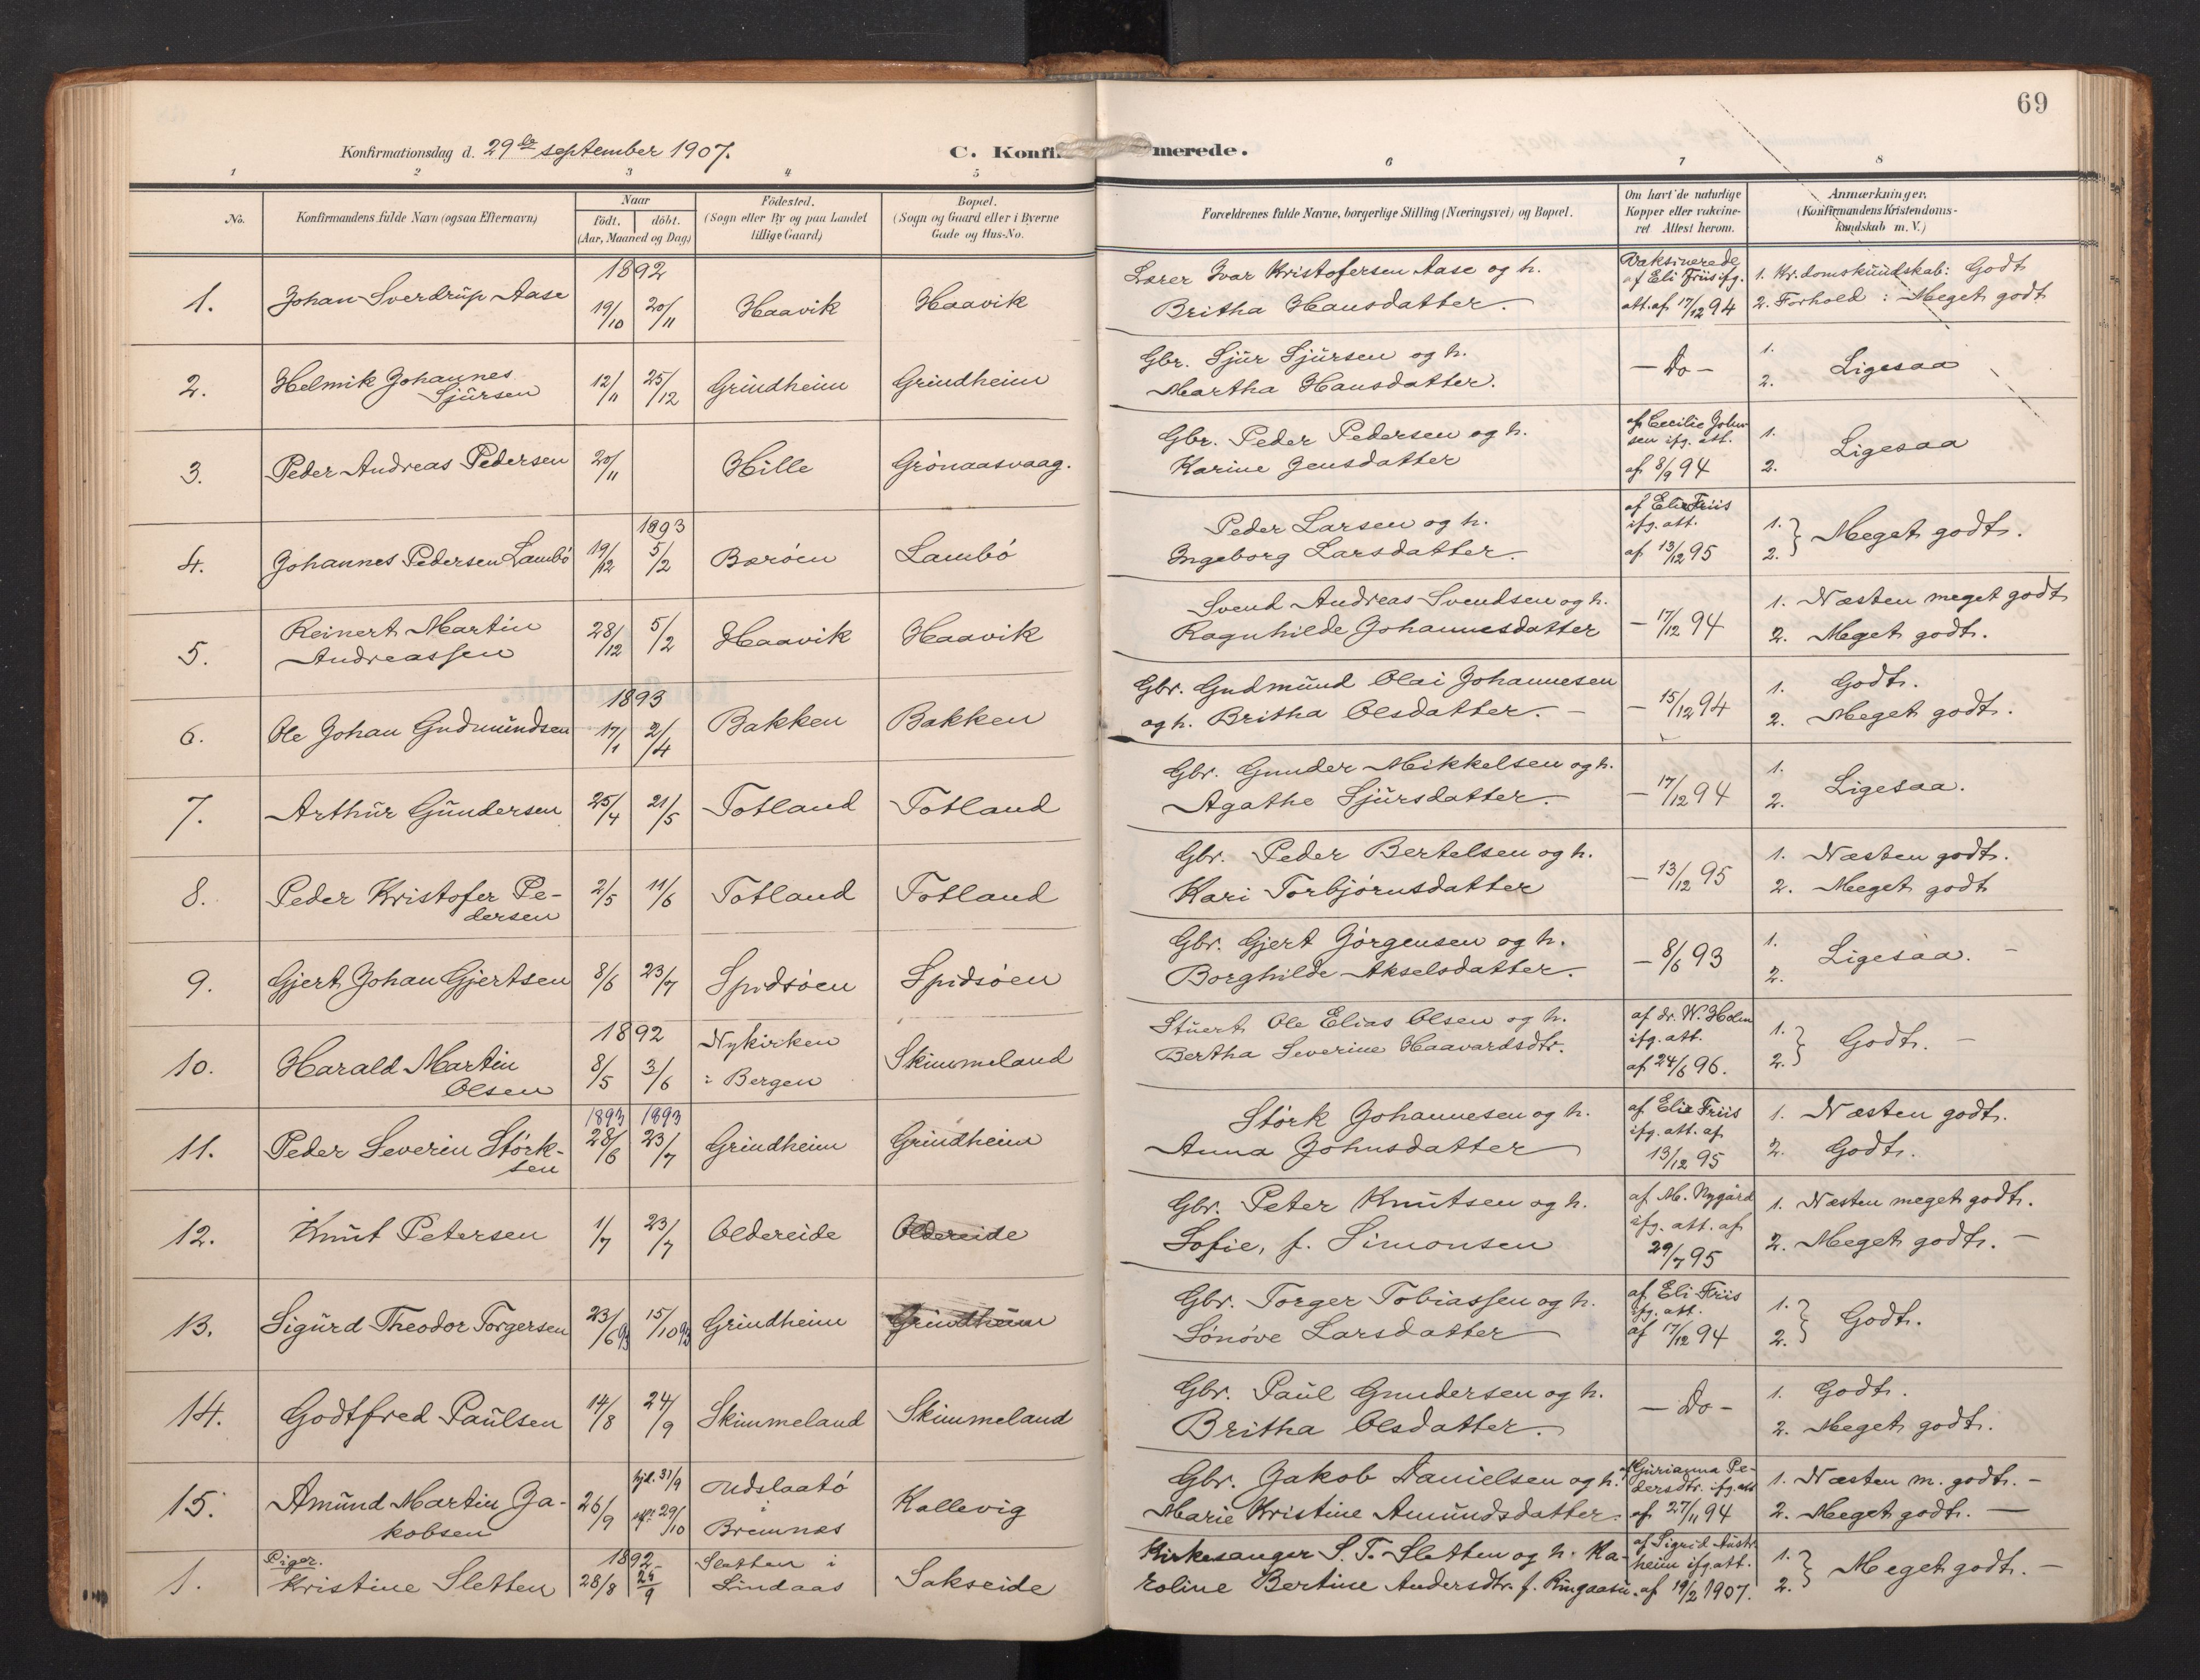 69
Konfirmationsdag d. 29de september 1907.
C. Konfir merede.
1 2 3 4 5 6 7 8
No.
Konfirmandens fulde Navn (ogsaa Efternavn)
Naar
födt. döbt.
(Aar, Maaned og Dag)
Födested.
(Sogn eller By og paa Landet
tillige Gaard)
Bopæl.
(Sogn og Gaard eller i Byerne
Gade og Hus-No.
Forældrenes fulde Navne, borgerlige Stilling (Næringsvei) og Bopæl.
Om havt de naturlige
Kopper eller vakcine-
ret Attest herom.
Anmærkninger,
(Konfirmandens Kristendoms-
kundskab m. V.)
1892
1. Johan Sverdrup Aase 19/10 20/11 Haavik Haavik
Lærer Ivar Kristofersen Aase og h.
Britha Hansdatter.
Vaksinerede
af Eli Friis ifg.
att. af 17/12 94
1. Kr.domskundskab: Godt
2. Forhold: Meget godt
2. Helmik Johannes
Sjursen 12/11 25/12 Grindheim Grindheim
Gbr. Sjur Sjursen og h.
Martha Hansdatter.
- Do -
1.
2. Ligesaa
3. Peder Andreas Pedersen 20/11 Hille Grönaasvaag.
Gbr. Peder Pedersen og h.
Karine Jensdatter
af Cecilie John-
sen ifg. att.
af 8/9 94
1.
2. Ligesaa
1893
4. Johannes Pedersen Lambö 19/12 5/2 Bæröen Lambö
Peder Larsen og h.
Ingeborg Larsdatter.
af Elie Friis
ifg. att.
af 13/12 95
1.
2. } Meget godt.
5. Reinert Martin
Andreassen 28/12 5/2 Haavik Haavik
Svend Andreas Svendsen og h.
Ragnhilde Johannesdatter
- 17/12 94
1. Næsten meget godt
2. Meget godt.
1893
6. Ole Johan Gudmundsen 17/1 2/4 Bakken Bakken
Gbr. Gudmund Olai Johannesen
og h. Britha Olsdatter. -
- 15/12 94
1. Godt.
2. Meget godt.
7. Arthur Gundersen 25/4 21/5 Totland Totland
Gbr. Gunder Mikkelsen og h.
Agathe Sjursdatter.
- 17/12 94
1.
2. Ligesaa.
8. Peder Kristofer Pe-
dersen 2/5 11/6 Totland Totland
Gbr. Peder Bertelsen og h.
Kari Torbjörnsdatter
- 13/12 95
1. Næsten godt.
2. Meget godt
9. Gjert Johan Gjertsen 8/6 23/7 Spidsöen Spidsöen
Gbr. Gjert Jörgensen og h.
Borghilde Akselsdatter.
- 8/6 93
1.
2. Ligesaa. -
1892
10. Harald Martin
Olsen 8/5 3/6 Nykirken
i Bergen Skimmeland
Stuert Ole Elias Olsen og h.
Bertha Severine Haavardsdtr.
af dr. W. Holm
ifg. att.
af 24/6 96.
1.
2. } Godt. -
1893 1893
11. Peder Severin Störk-
sen 28/6 23/7 Grindheim Grindheim
Störk Johannesen og h.
Anna Johnsdatter
af Elie Friis
ifg. att. af
13/12 95
1. Næsten godt.
2. Godt.
12. Knut Petersen 1/7 23/7 Oldereide Oldereide
Gbr. Peter Knutsen og h.
Sofie, f. Simonsen
af M. Nygård
ifg. att. af
29/7 95
1. Næsten meget godt.
2. Meget godt. -
13. Sigurd Theodor Torgersen 23/6 93 15/10 93 Grindheim Grindheim
Gbr. Torger Tobiassen og h.
Sönöve Larsdatter
af Eli Friis
ifg. att.
af 17/12 94
1.
2. } Godt.
14. Godtfred Paulsen 14/8 24/9 Skimmeland Skimmeland
Gbr. Paul Gundersen og h.
Britha Olsdatter.
- Do -
1. Godt.
2. Meget godt.
15. Amund Martin Ja-
kobsen 26/9 hjd. 31/9 29/10 Udslaatö
i
Bremnæs Kallevig
Gbr. Jakob Danielsen og h.
Marie Kristine Amundsdatter.
af Gurianna Pe-
dersdtr. ifg. att
af 27/11 94
1. Næsten m. godt. -
2. Meget godt. -
Piger.
1892
1. Kristine Sletten 28/8 25/9 Sletten i
Lindaas Sakseide
Kirkesanger S. T. Sletten og h. Ka-
roline Bertine Andersdtr. f. Ringaasu.
af Sigrid Austr-
heim ifg att.
af 19/2 1907.
1.
2. } Meget godt. -